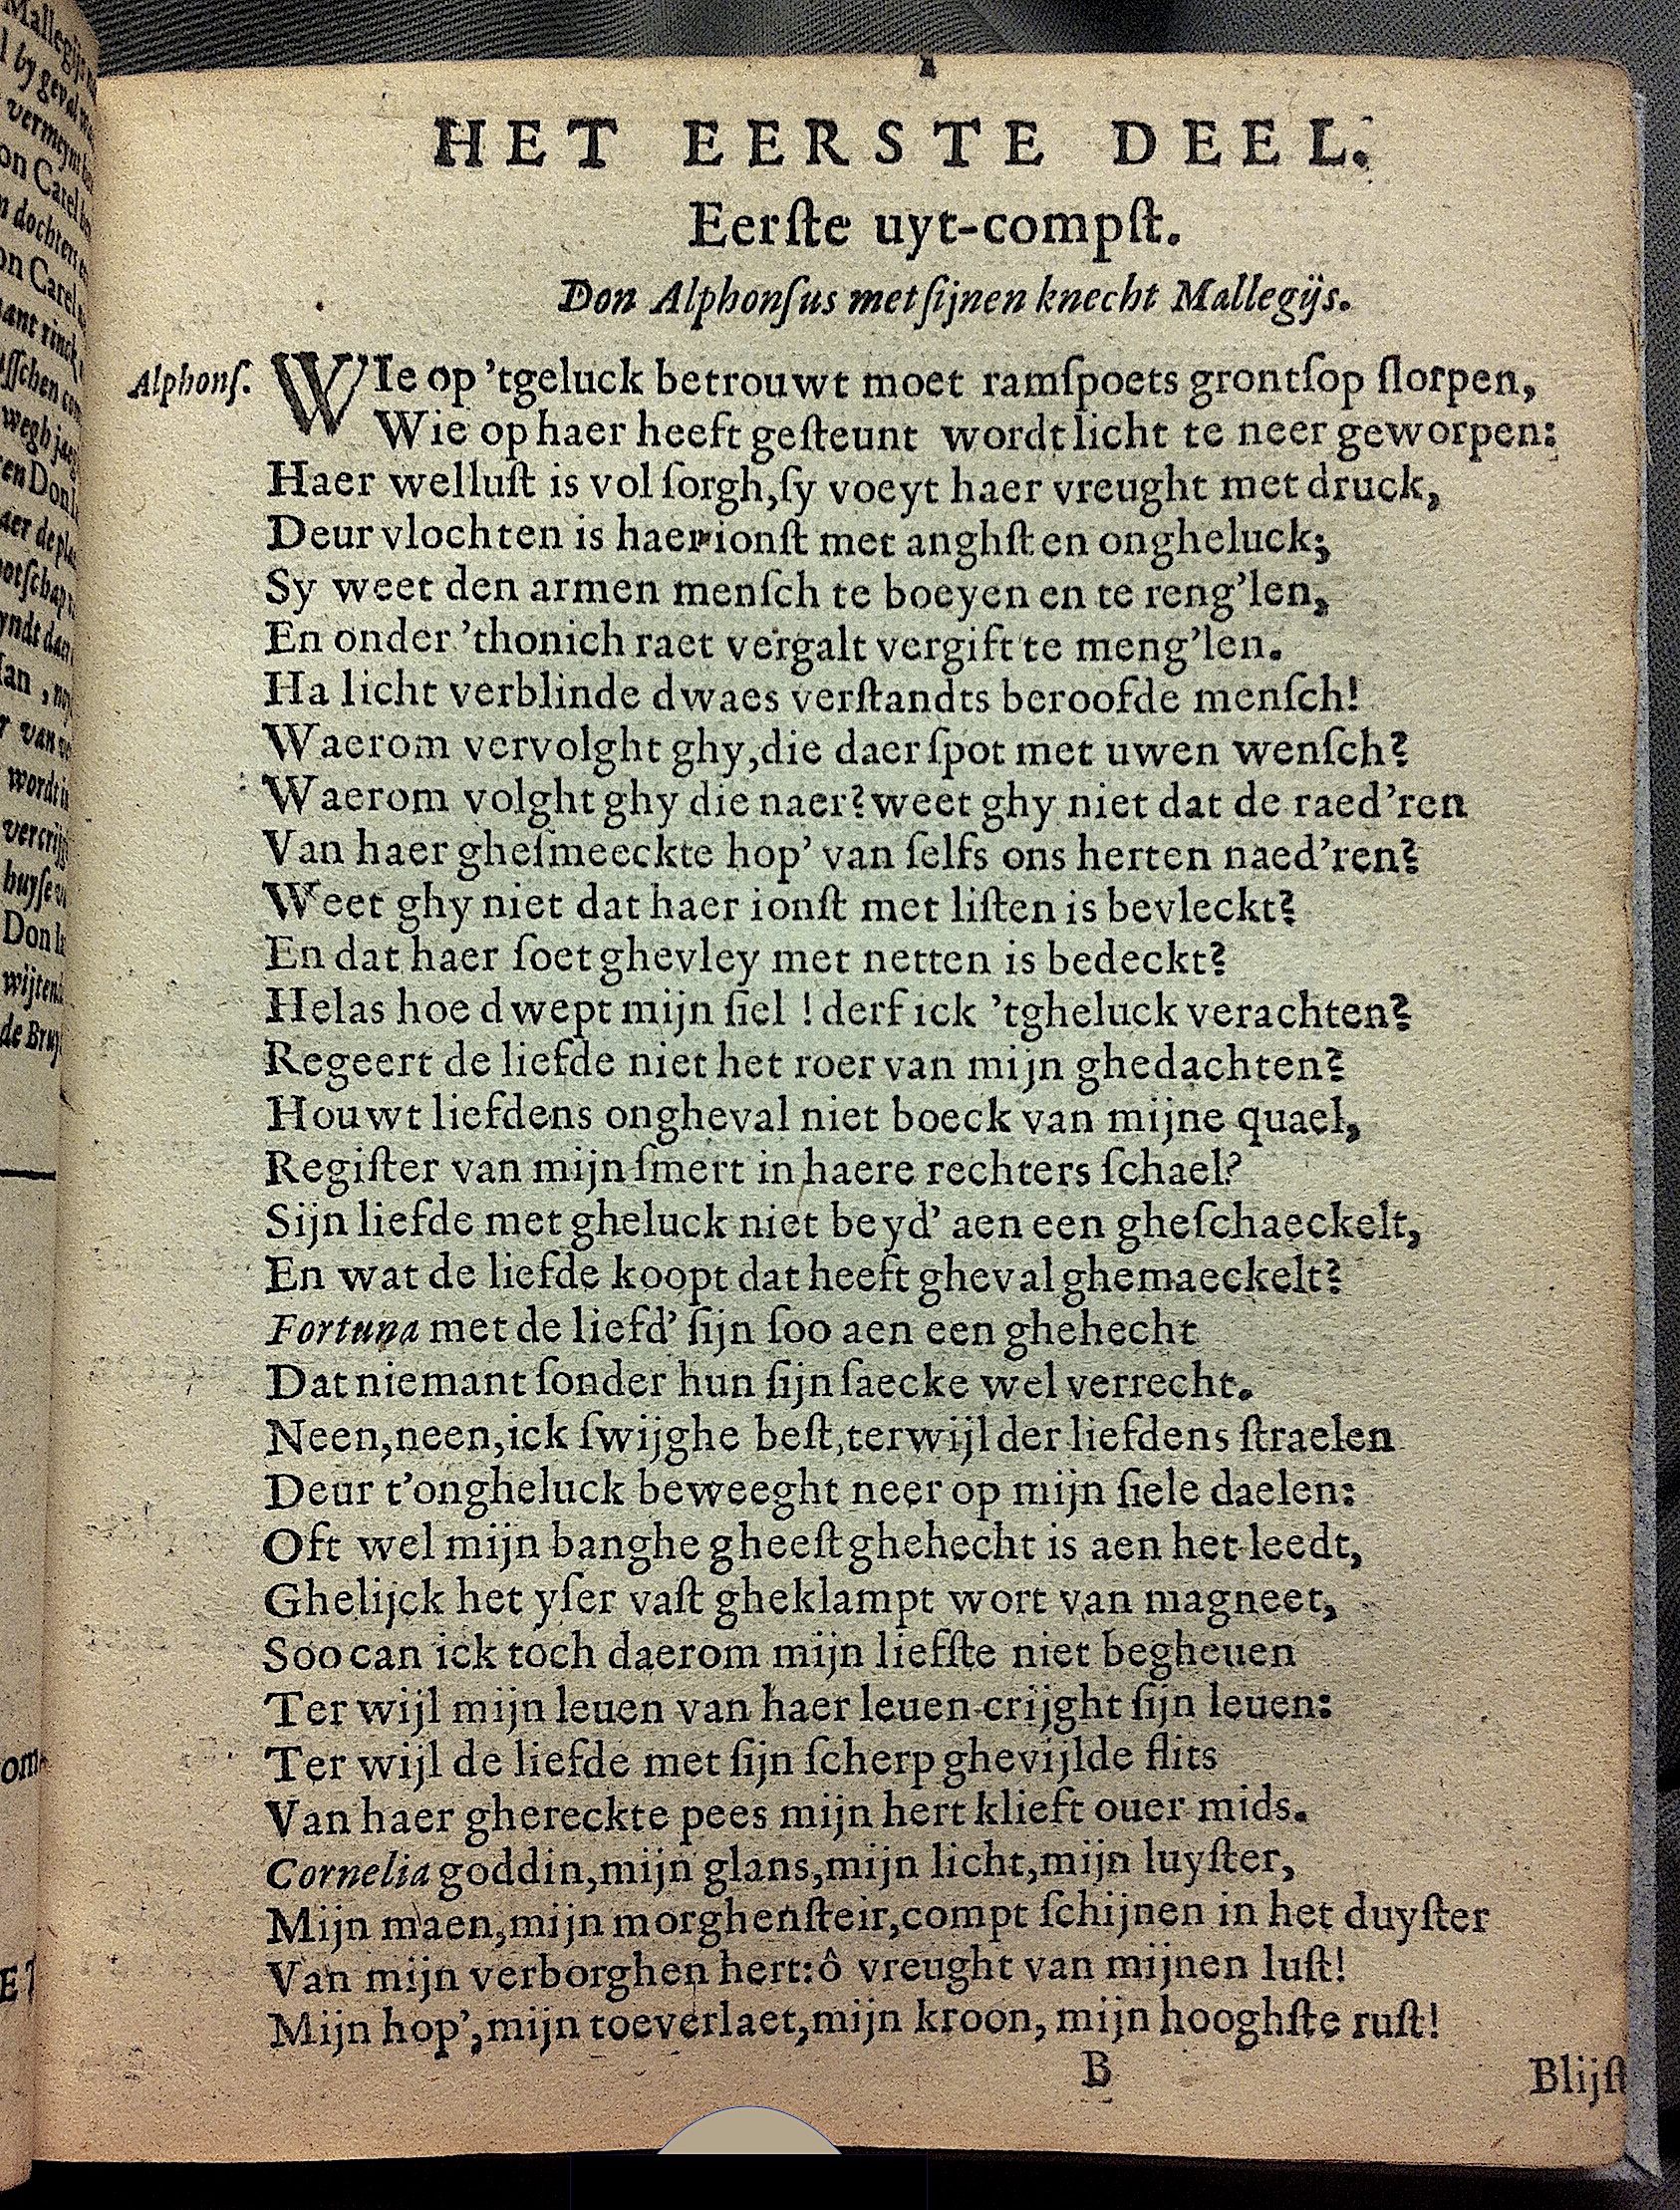 HET EERSTE DEEL.
Eerſte uyt-compſt.
Don Alphonſus met ſijnen knecht Mallegijs.
Alphonſ. WIe op ’tgeluck betrouwt moet ramſpoets grontſop ſlorpen,
Wie op haer heeft geſteunt wordt licht te neer geworpen:
Haer welluſt is vol ſorgh, ſy voeyt haer vreught met druck,
Deur vlochten is haer ionſt met anghſt en ongheluck;
Sy weet den armen menſch te boeyen en te reng’len,
En onder ’thonich raet vergalt vergift te meng’len.
Ha licht verblinde dwaes verſtandts beroofde menſch!
Waerom vervolght ghy, die daer ſpot met uwen wenſch?
Waerom volght ghy die naer? weet ghy niet dat de raed’ren
Van haer gheſmeeckte hop’ van ſelfs ons herten naed’ren?
Weet ghy niet dat haer ionſt met liſten is bevleckt?
En dat haer ſoet ghevley met netten is bedeckt?
Helas hoe dwept mijn ſiel ! derf ick ’tgheluck verachten?
Regeert de liefde niet het roer van mijn ghedachten?
Houwt liefdens ongheval niet boeck van mijne quael,
Regiſter van mijn ſmert in haere rechters ſchael?
Sijn liefde met gheluck niet beyd’ aen een gheſchaeckelt,
En wat de liefde koopt dat heeft gheval ghemaeckelt?
Fortuna met de liefd’ ſijn ſoo aen een ghehecht
Dat niemant ſonder hun ſijn ſaecke wel verrecht.
Neen, neen, ick ſwijghe beſt, terwijl der liefdens ſtraelen
Deur t’ongheluck beweeght neer op mijn ſiele daelen:
Oft wel mijn banghe gheeſt ghehecht is aen het leedt,
Ghelijck het yſer vaſt gheklampt wort van magneet,
Soo can ick toch daerom mijn liefſte niet begheuen
Ter wijl mijn leuen van haer leuen crijght ſijn leuen:
Ter wijl de liefde met ſijn ſcherp ghevijlde flits
Van haer ghereckte pees mijn hert klieft ouer mids.
Cornelia goddin, mijn glans, mijn licht, mijn luyſter,
Mijn maen, mijn morghenſteir, compt ſchijnen in het duyſter
Van mijn verborghen hert: ô vreught van mijnen luſt!
Mijn hop’, mijn toeverlaet, mijn kroon, mijn hooghſte ruſt!
B
Blijſt